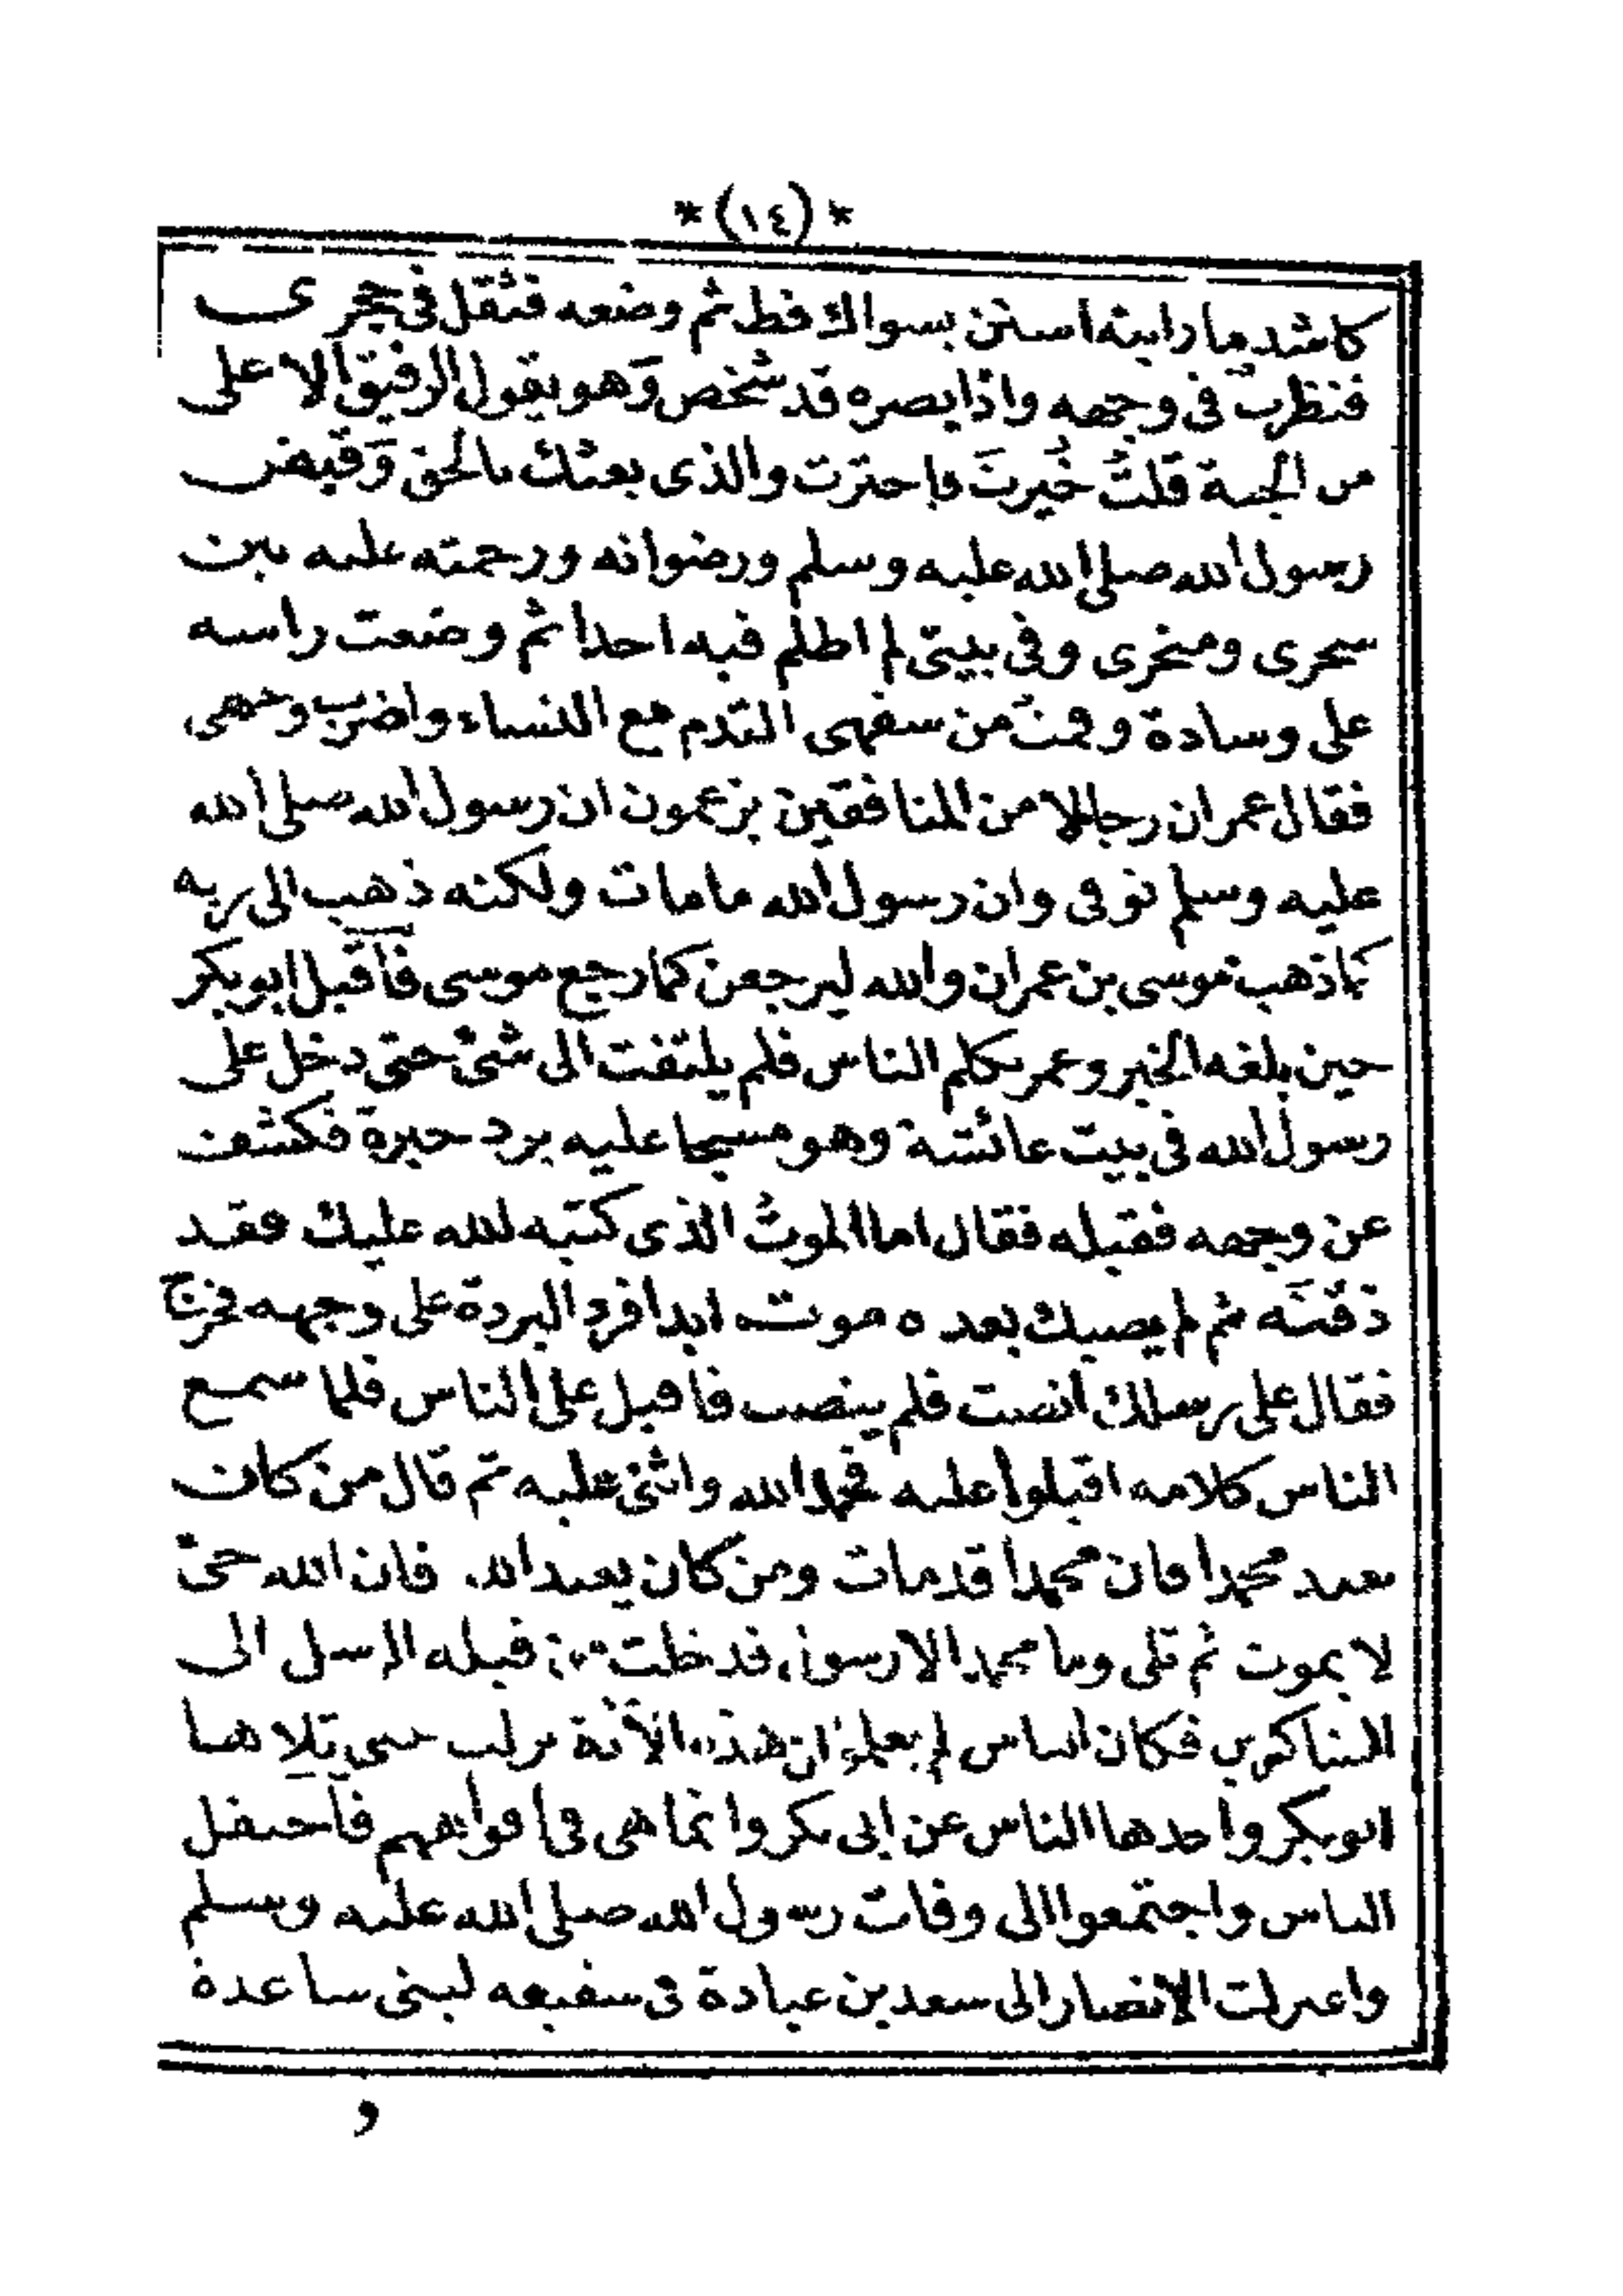 *(١٤)*
كاشد ما رايته استن بسواك قط ثم وضعه فثقل في حجرى
فنظرت فى وجهه واذا بصره قد شخص وهو يقول الرفيق الاعلى
من الجنة قلتُ خُيرتَ فاخترت والذى بعثك بالحق وَقبض
رسول الله صلى الله عليه وسلم ورضوانه ورحمته عليه بين
سحرى ومنخرى وفى بيتى لم اظلم فيه احدا ثم وضعت راسه
على وسادة وقمت من سفهى التدم مع النساء واضرب وجهى
فقال عمر ان رجالا من المنافقين يزعمون ان رسول الله صلى الله
عليه وسلم توفى وان رسول الله مامات ولكنه ذهب الى ربه
كما ذهب موسى بن عمران والله ليرجعن كما رجع موسى فأقبل ابو بكر
حين بلغه الخبر وعمر يكلم الناس فلم يلتفت الى شئ حتى دخل على
رسول الله فى بيت عائشة وهو مسجا عليه برد حبرة فكشف
عن وجهه فقبله فقال اما الموت الذى كتبه لله عليك فقد
ذقته ثم لم يصبك بعده موت ابدا فرد البردة على وجهه فخرج
فقال على رسلك انصت فلم ينصت فاقبل على الناس فلما سمع
الناس كلامه اقبلوا عليه فحمد الله واثنى عليه ثم قال من كان
يعبد محمدا فان محمدا قدمات ومن كان يعبد الله فان الله حىّ
لا يموت ثم تلى وما محمد الا رسول قد خلت من قبله الرسل الى
الشاكرين فكان الناس لم يعلموا ان هذه الآية نزلت حتى تلاها
ابو بكر واخذها الناس عن ابى بكر وانما هى فى افواههم فأحتفل
الناس واجتمعوا الى وفات رسول الله صلى الله عليه وسلم
واعتزلت الانصار الى سعد بن عبادة فى سقيفه لبنى ساعدة
و